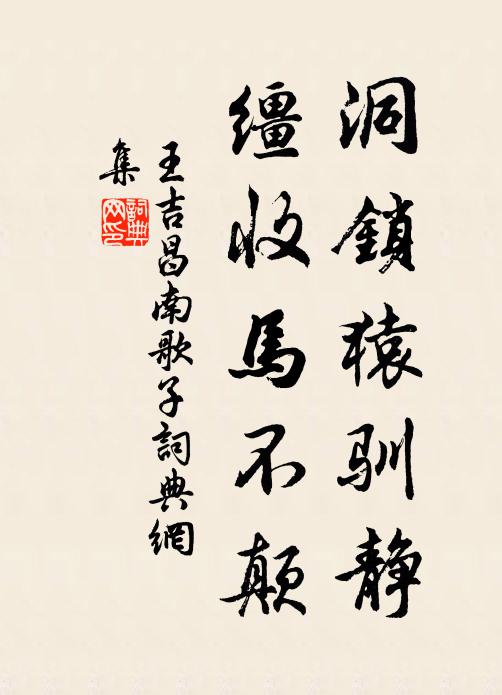 洞鎖猿馴静
繮收馬不顛
王吉昌南歌子詞典網
集
詞典
网印